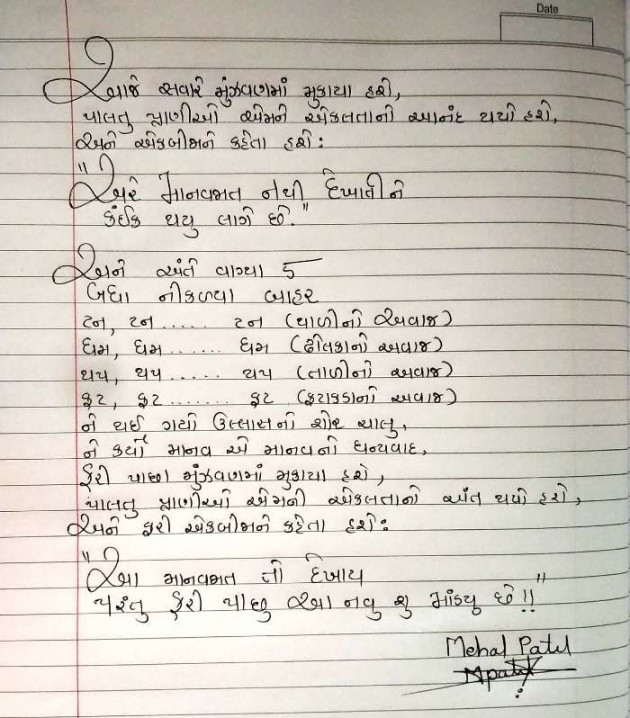 Date
આજે સવારે મુંઝવણમાં મુકાયા હશે,
પાલતુ પ્રાણીઓ એમને એકલતાનો આનંદ થયો હશે,
અને એકબીજાને કહેતા હશે:
"અરે માનવજાત નથી દેખાતી ને
કંઈક થયુ લાગે છે."
અને અંતે વાગ્યા 5
બધા નીકળ્યા બાહર
ટન, ટન ..... ટન (થાળીનો અવાજ)
ધમ, ધમ ...... ધમ (ઢોલકાનો અવાજ)
થપ, થપ ..... થપ (તાળીનો અવાજ)
ફટ, ફટ ....... ફટ (ફટાકડાનો અવાજ)
ને થઈ ગયો ઉલ્લાસનો શોર ચાલુ,
ને કર્યો માનવ એ માનવનો ધન્યવાદ,
ફેરી પાછા મુંઝવણમાં મુકાયા હશે,
પાલતુ પ્રાણીઓ એમની એકલતાનો અંત થયો હશે,
અને ફરી એકબીજાને કહેતા હશે:
"આ માનવજાત તો દેખાય
પરંતુ ફેરી પાછુ આ નવુ શુ માંડ્યુ છે!!"
Mehal Patil
Mpatil